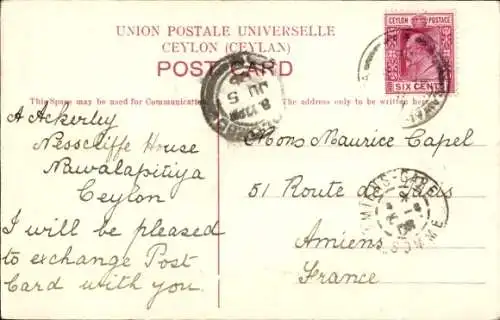 UNION POSTALE UNIVERSELLE
CEYLON (CEYLAN)
POST CARD
CEYLON POSTAGE
SIX CENTS
This Space may be used for Communication.
The address only to be written here.
A Ackerley
Nesscliffe House
Nawalapitiya
Ceylon
I will be pleased
to exchange Post
Card with you.
Mons Maurice Capel
51 Route de
Amiens
France
8.
JU 5
AMIENS-GARE
SOMME